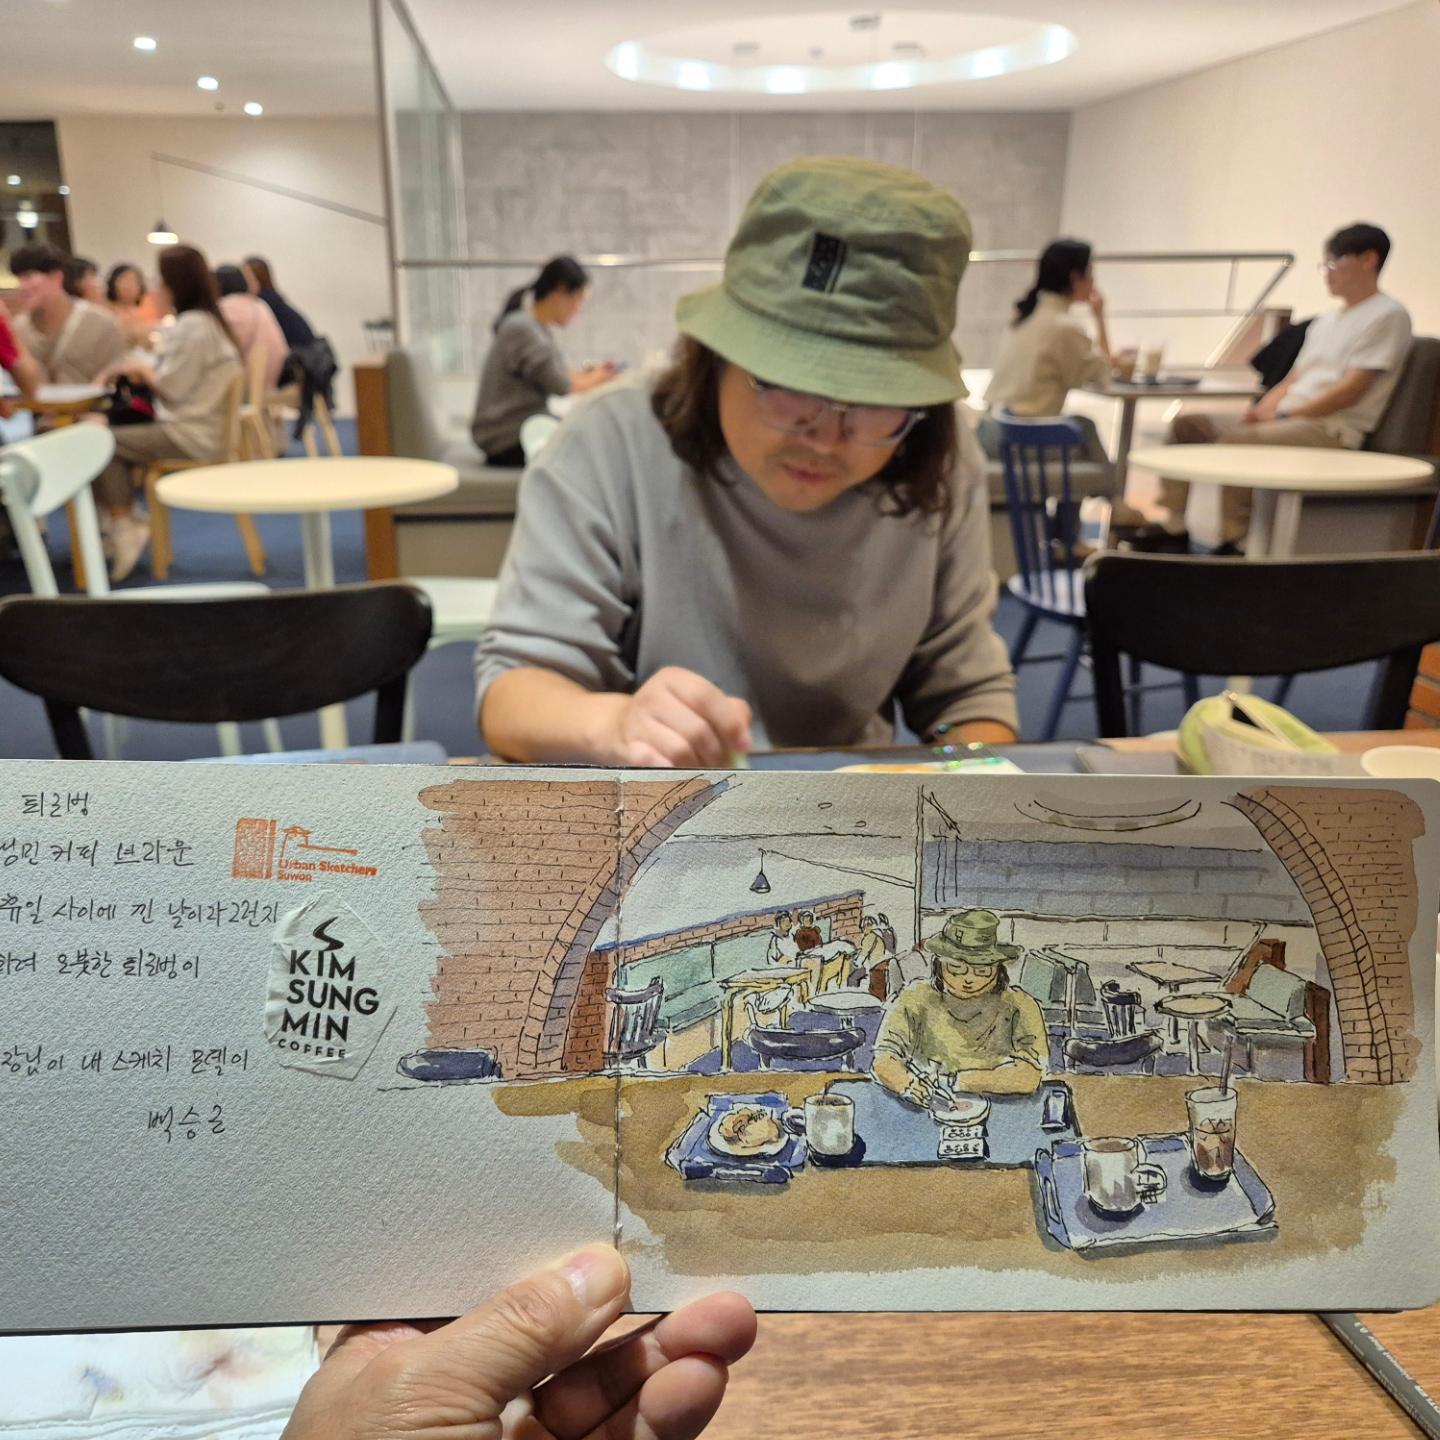 퇴리벙
성민 커피 브라운
휴일 사이에 낀 날이라 그런지
오붓한 퇴리벙이
장님이 내 스케치 모델이
백승근
Urban Sketchers
Suwon
KIM
SUNG
MIN
COFFEE